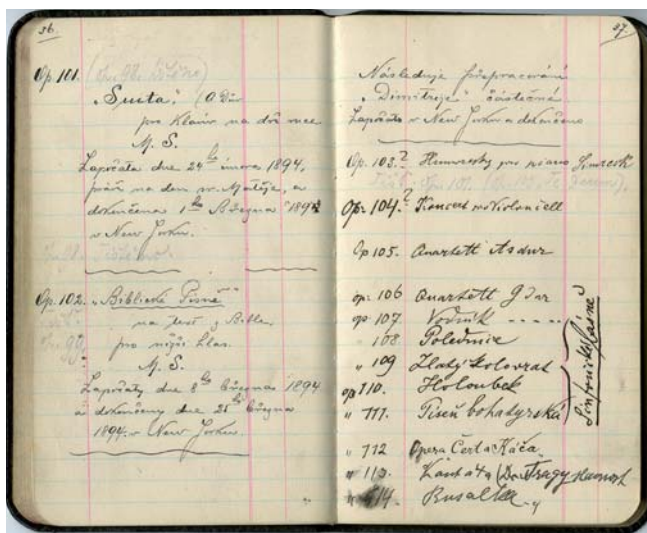 36.
Op. 101. (Op. 98. tištěno)
„Suita." (A Dur
pro Klavír na dvě ruce
M. S.
Započata dne 24ho února 1894,
právě na den sv. Matěje, a
dokončena 1ho Března 1894
v New Yorku.
Op. 98. Tištěno.
Op. 102. „Biblické Písně"
na text z Bible
pro nižší hlas.
M. S.
Op. 99.
Započaty dne 8ho března 1894
a dokončeny dne 26ho března
1894 v New Yorku.
37.
Následuje přepracování
„Dimitrije" částečné
Započato v New Yorku a dokončeno
Op. 103.? Humoresky pro piano Simrock
Op. 101.
Op. 104.? Koncert pro Violoncell
Op 105. Quartett As dur
op. 106 Quartett G dur
op. 107 Vodník
108 Polednice
„ 109 Zlatý kolovrat
op 110. Holoubek
„ 111. Píseň bohatýrská
Sinfonické básně
„ 112 Opera Čert a Káča
„ 113. Kantáta
„ 114. Rusalka